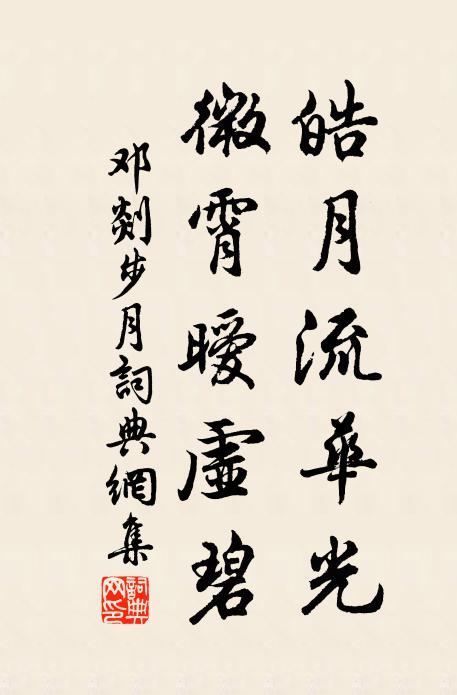 皓月流華光
微霄曖虛碧
邓剡步月詞典網集
詞典网印